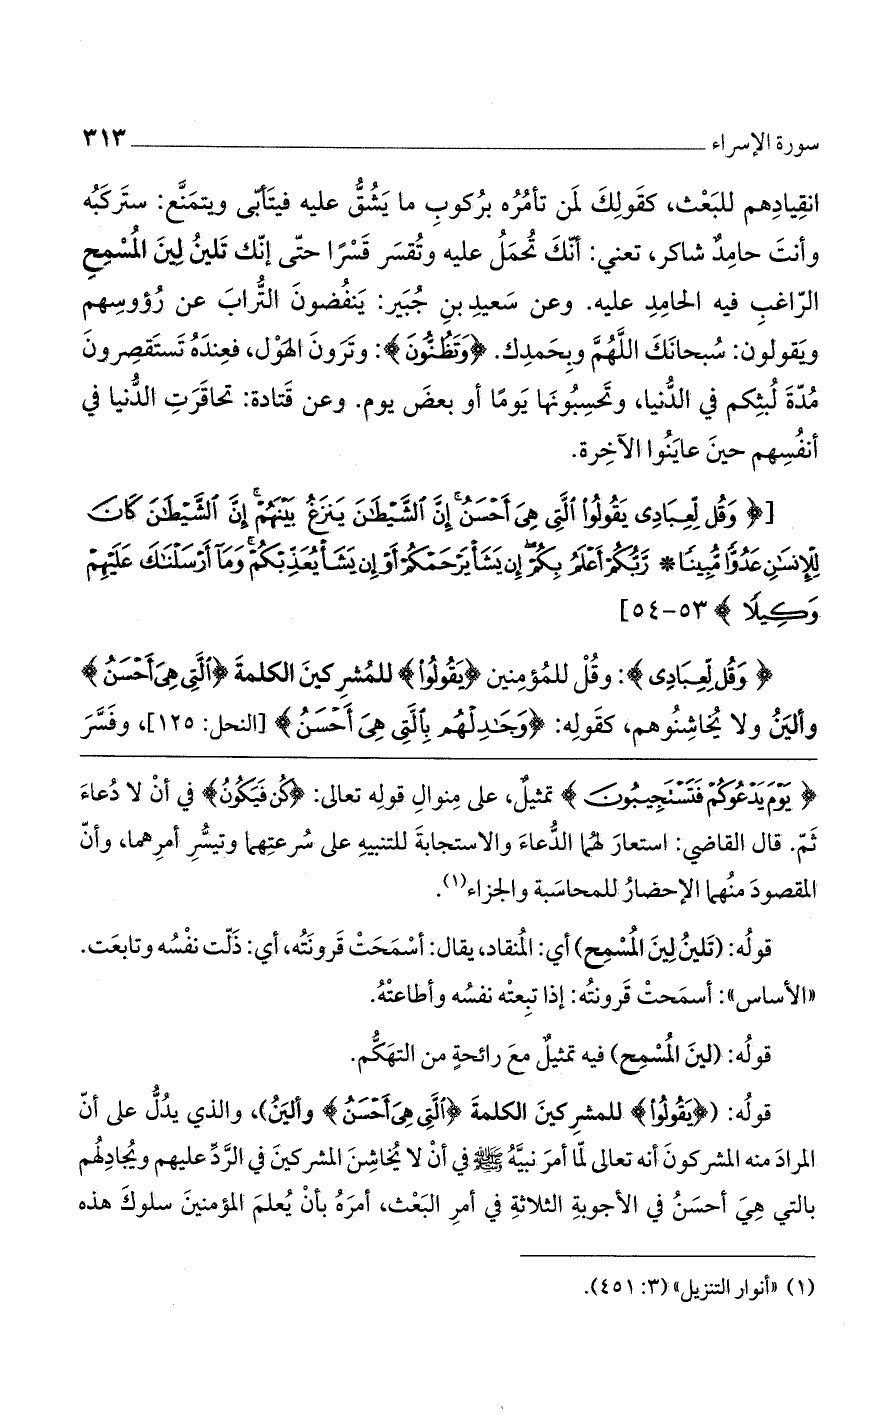 سورة الإسراء ــــــــــ ٣١٣
انقِيادِهم للبَعْث، كقَولِكَ لمَن تأمُرُه برُكوبِ ما يَشُقُّ عليه فيتَأبّى ويتمَنَّع: ستَركَبُه
وأنتَ حامِدٌ شاكر، تعني: أنّكَ تُحمَلُ عليه وتُقسَر قَسْرًا حتّى إنّك تَلينُ لِينَ المُسْمِحِ
الرّاغبِ فيه الحامِدِ عليه. وعن سَعيدِ بنِ جُبَير: يَنفُضونَ التُّرابَ عن رُؤوسِهم
ويَقولون: سُبحانَكَ اللَّهُمَّ وبِحَمدِك. ﴿وَتَظُنُّونَ﴾: وتَرونَ الهَوْل، فعِندَهُ تَستَقصِرونَ
مُدّةَ لُبثِكم في الدُّنيا، وتَحسِبُونَها يَومًا أو بعضَ يوم. وعن قَتادة: تحاقَرَتِ الدُّنيا في
أنفُسِهم حينَ عايَنُوا الآخِرة.
[﴿ وَقُل لِّعِبَادِى يَقُولُوا۟ ٱلَّتِى هِىَ أَحْسَنُ ۚ إِنَّ ٱلشَّيْطَـٰنَ يَنزَغُ بَيْنَهُمْ ۚ إِنَّ ٱلشَّيْطَـٰنَ كَانَ
لِلْإِنسَـٰنِ عَدُوًّا مُّبِينًا * رَّبُّكُمْ أَعْلَمُ بِكُمْ ۖ إِن يَشَأْ يَرْحَمْكُمْ أَوْ إِن يَشَأْ يُعَذِّبْكُمْ ۚ وَمَآ أَرْسَلْنَـٰكَ عَلَيْهِمْ
وَكِيلًا ﴾ ٥٣-٥٤]
﴿ وَقُل لِّعِبَادِى ﴾: وقُلْ للمُؤمِنين ﴿يَقُولُوا۟﴾ للمُشرِكينَ الكلمةَ ﴿ٱلَّتِى هِىَ أَحْسَنُ ﴾
وألينُ ولا يُخاشِنُوهم، كقَولِه: ﴿وَجَـٰدِلْهُم بِٱلَّتِى هِىَ أَحْسَنُ﴾ [النحل: ١٢٥]، وفَسَّرَ
﴿ يَوْمَ يَدْعُوكُمْ فَتَسْتَجِيبُونَ ﴾ تمثيلٌ، على مِنوالِ قولِه تعالى: ﴿كُن فَيَكُونُ﴾ في أنْ لا دُعاءَ
ثَمّ. قال القاضي: استعارَ لهُما الدُّعاءَ والاستجابةَ للتنبيهِ على سُرعتِهما وتيسُّرِ أمرِهما، وأنّ
المقصودَ منُهما الإحضارُ للمحاسَبة والجزاء(١).
قولُه: (تَلينُ لِينَ المُسْمِح) أي: المُنقاد، يقال: أسْمَحَتْ قَرونَتُه، أي: ذَلّت نفْسُه وتابعَت.
«الأساس»: أسمَحتْ قَرونتُه: إذا تبِعتْه نفسُه وأطاعتْهُ.
قولُه: (لينَ المُسْمِح) فيه تمثيلٌ معَ رائحةٍ من التهَكُّم.
قولُه: (﴿يَقُولُوا۟﴾ للمشرِكينَ الكلمةَ ﴿ٱلَّتِى هِىَ أَحْسَنُ﴾ وألينُ)، والذي يدُلُّ على أنّ
المرادَ منه المشركونَ أنه تعالى لمّا أمرَ نبيَّهُ ﷺ في أنْ لا يُخاشِنَ المشركينَ في الرَّدِّ عليهم ويُجادِلهُم
بالتي هِيَ أحسَنُ في الأجوبةِ الثلاثةِ في أمرِ البَعْث، أمرَهُ بأنْ يُعلمَ المؤمنينَ سلوكَ هذه
(١) «أنوار التنزيل» (٣: ٤٥١).